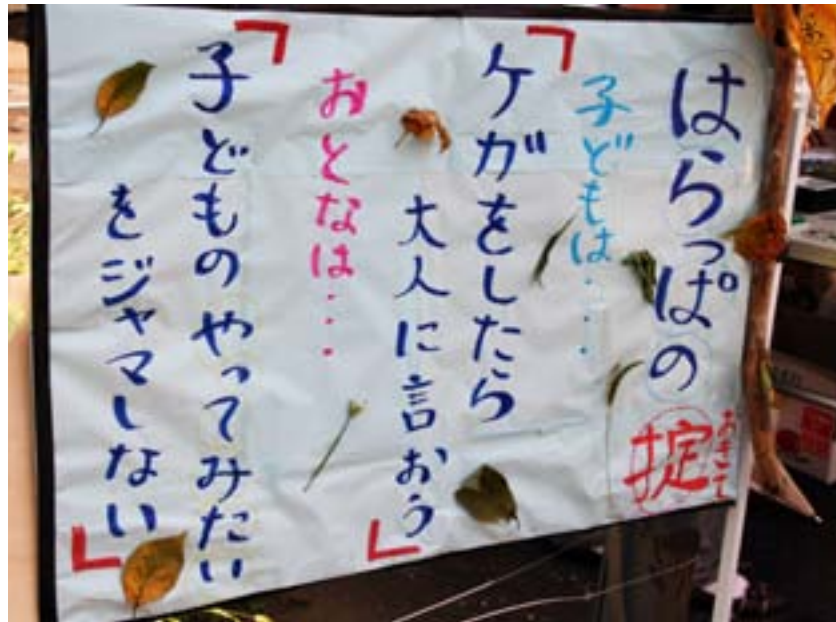 はらっぱの掟
おきて
子どもは・・・・
「ケガをしたら
大人に言おう」
おとなは・・・・
「子どものやってみたい
をジャマしない」